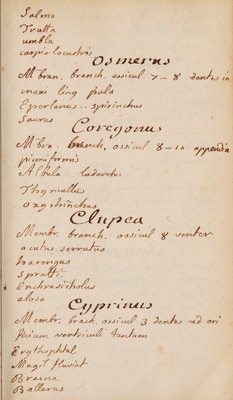 Salmo
Trutta
umbla
carpio lacustris
Osmerus
Mbran. branch. ossicul 7-8 dentes in
maxi ling pala
Eperlanus -- spirinchus
Saurus
Coregonus
Mbra. branch. ossicul 8-10 appendix
pinniformis
Albula Lavaretus
Thymallus
Oxyrhinchus
Clupea
Membr. branch. ossicul 8 venter
acutus serratus
harengus
Spratti
Enchrasicholus
alosa
Cyprinus
Membr. brach. ossicul 3 dentes ad ori
ficium ventriculi tantum
Erythophtal
Mugil fluviat
Braena
Ballerus